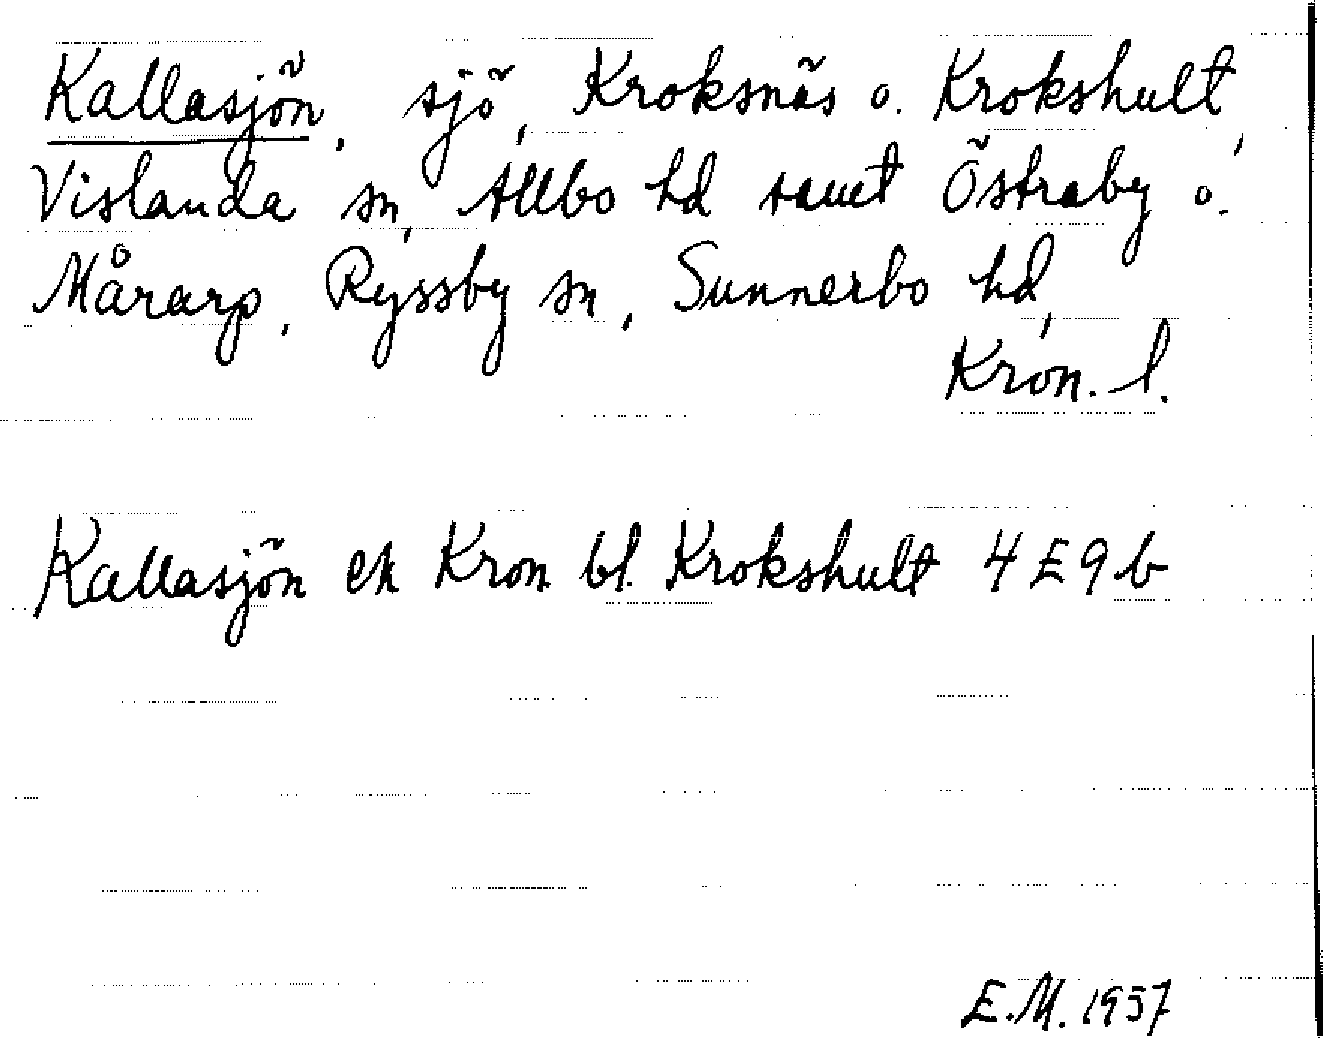 Kallasjön, sjö, Kroksnäs o. Krokshult,
Vislanda sn, Allbo hd samt Östraby o.
Mårarp, Ryssby sn, Sunnerbo hd,
Kron. l.
Kallasjön ek Kron bl. Krokshult 4 E 9 b
E.M. 1957